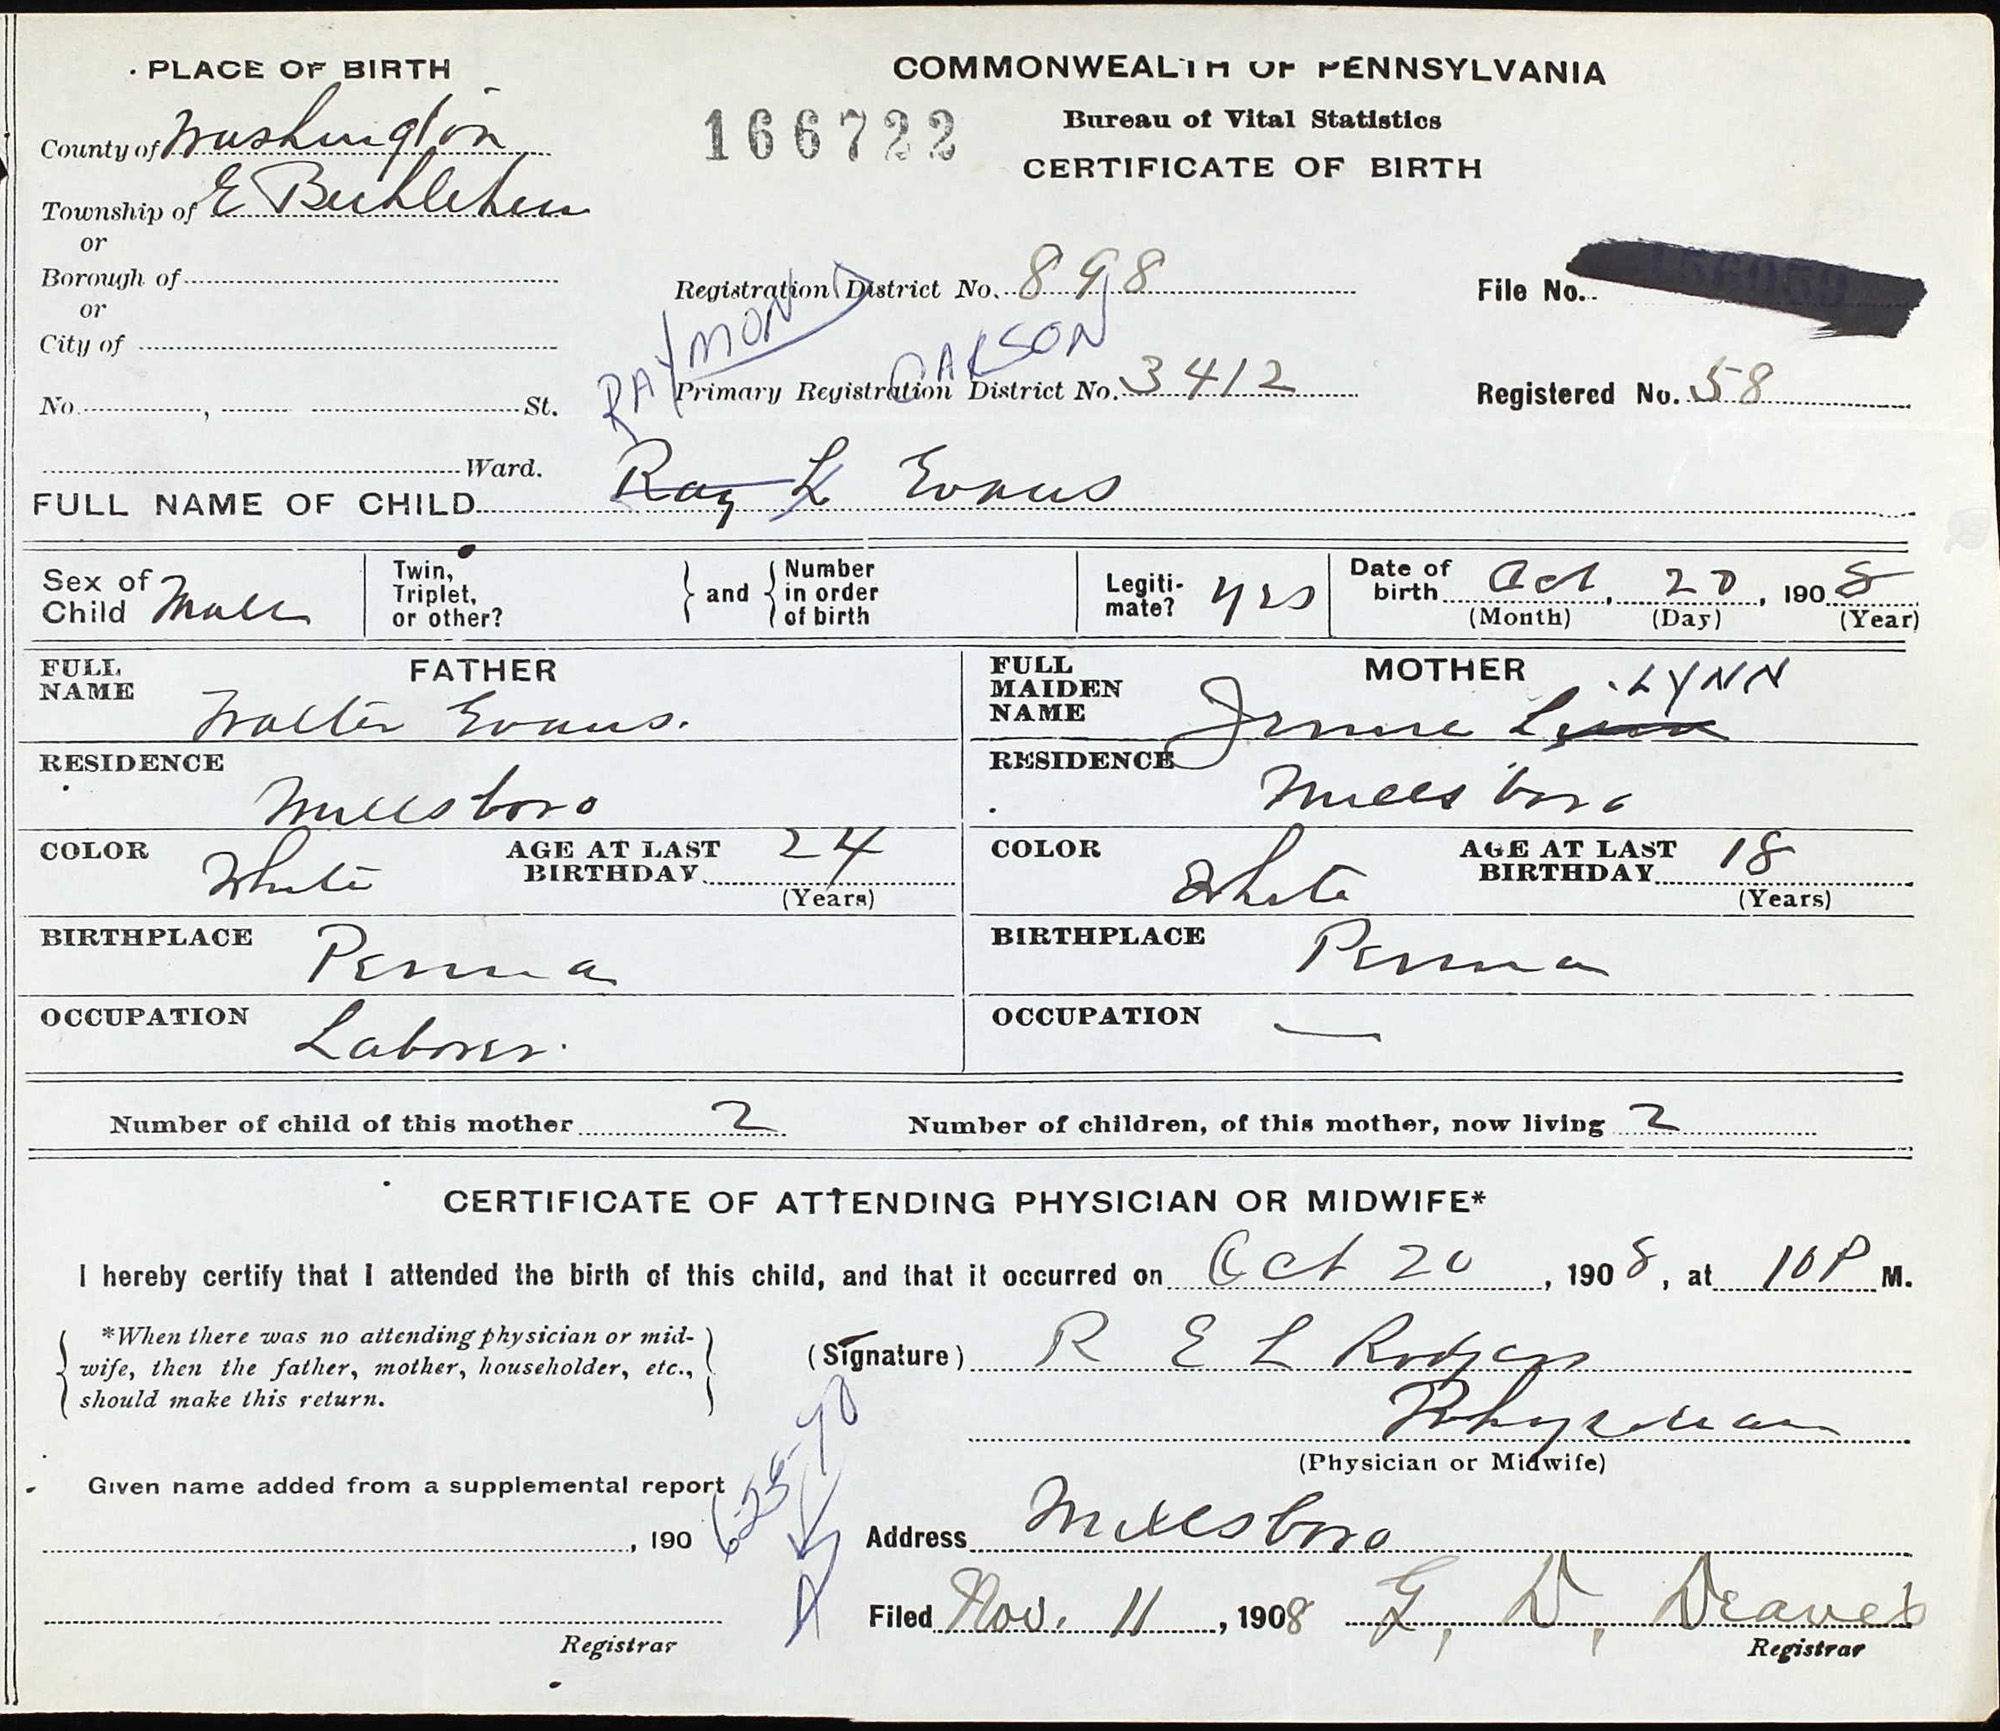 PLACE OF BIRTH
County of Washington
Township of E Bethlehem
or
Borough of
or
City of
No. , St.
Ward.
COMMONWEALTH OF PENNSYLVANIA
Bureau of Vital Statistics
CERTIFICATE OF BIRTH
166722
Registration District No. 898
File No.
RAYMOND CARSON
Primary Registration District No. 3412
Registered No. 58
FULL NAME OF CHILD Ray L Evans
Sex of Child Male
Twin, Triplet, or other? } and { Number in order of birth
Legitimate? yes
Date of birth Oct, 20, 1908
(Month) (Day) (Year)
FATHER
FULL NAME Walter Evans.
RESIDENCE Millsboro
COLOR White AGE AT LAST BIRTHDAY 24
(Years)
BIRTHPLACE Penna
OCCUPATION Laborer.
MOTHER
FULL MAIDEN NAME Jennie LYNN
RESIDENCE Millsboro
COLOR White AGE AT LAST BIRTHDAY 18
(Years)
BIRTHPLACE Penna
OCCUPATION —
Number of child of this mother 2 Number of children, of this mother, now living 2
CERTIFICATE OF ATTENDING PHYSICIAN OR MIDWIFE*
I hereby certify that I attended the birth of this child, and that it occurred on Oct 20, 1908, at 10 P M.
*When there was no attending physician or mid-
wife, then the father, mother, householder, etc.,
should make this return.
(Signature) R E L Rodgers
Physician
(Physician or Midwife)
Given name added from a supplemental report
, 190
Registrar
Address Millsboro
Filed Nov. 11, 1908 G. D.
Registrar